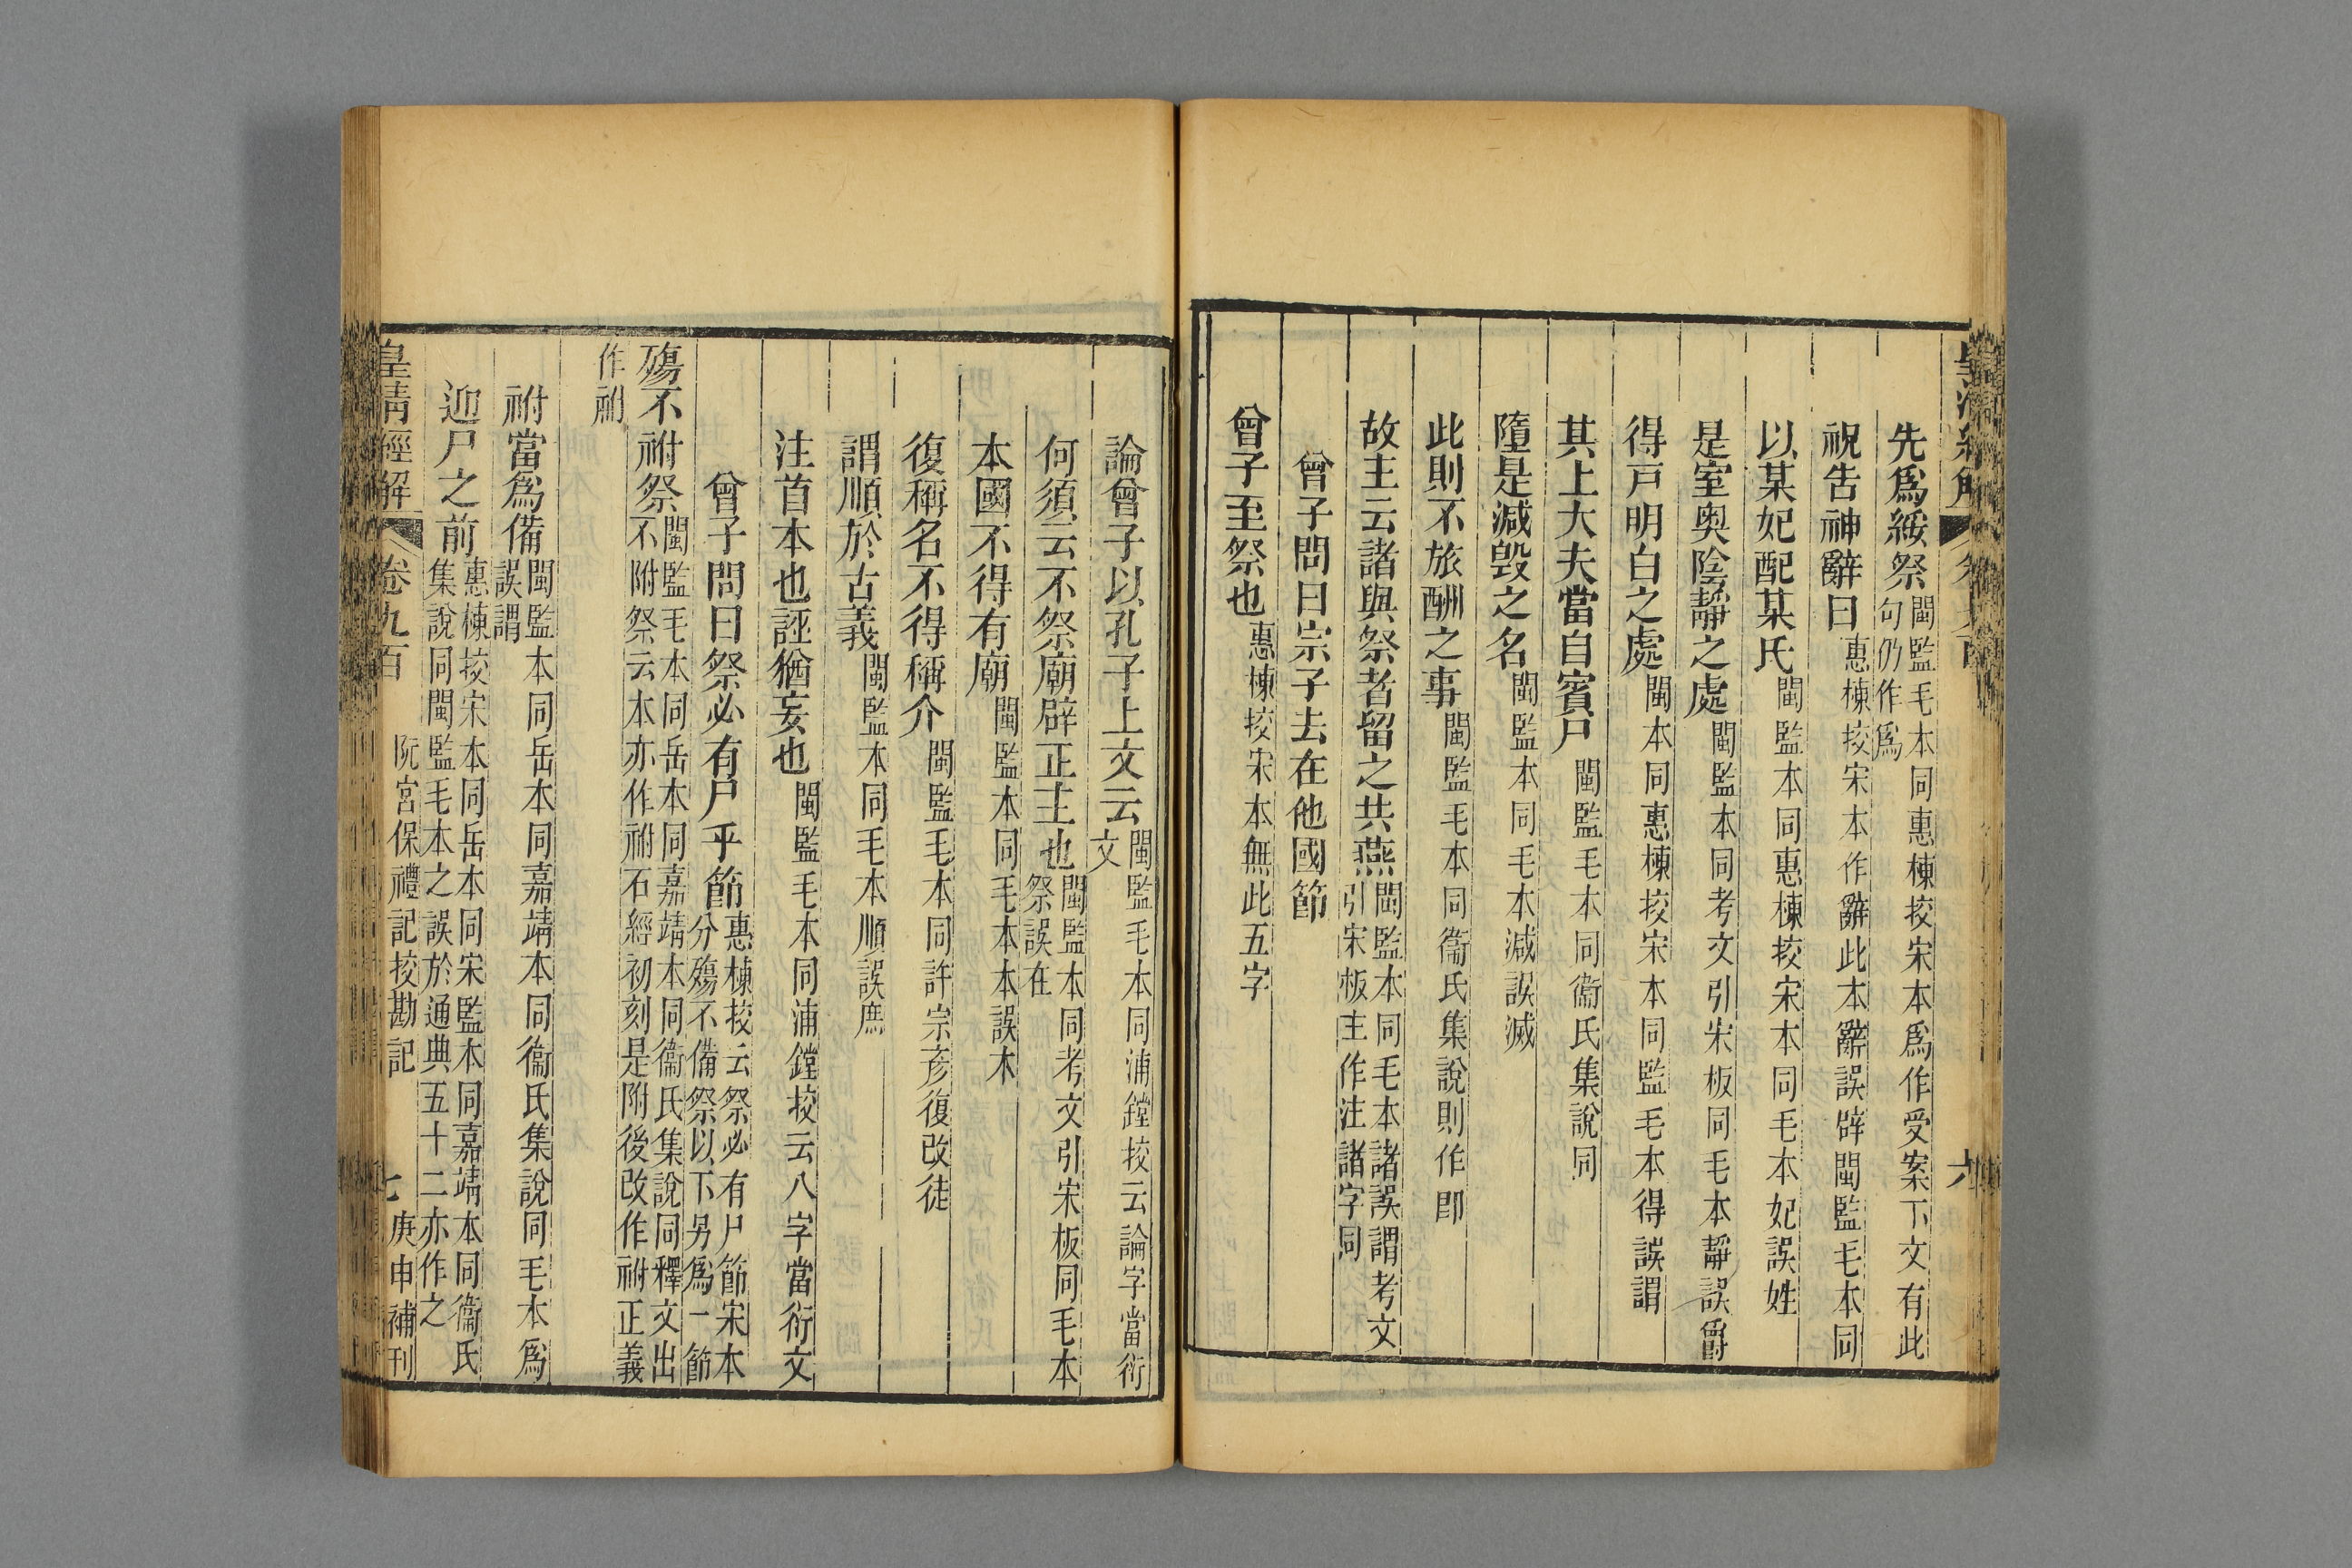 先爲綏祭閩監毛本同惠棟挍宋本爲作受案下文有此句仍作爲
祝告神辭曰惠棟挍宋本作辭此本辭誤辟閩監毛本同
以某妃配某氏閩監本同惠棟挍宋本同毛本妃誤姓
是室奥陰靜之處閩監本同考文引宋板同毛本靜誤爵
得戸明白之處閩本同惠棟挍宋本同監毛本得誤謂
其上大夫當自賓尸閩監毛本同衞氏集說同
隋是減毀之名閩監本同毛本減誤滅
此則不旅酬之事閩監毛本同衞氏集說則作卽
故主云諸與祭者留之共燕閩監本同毛本諸誤謂考文引宋板主作注諸字同
曾子問曰宗子去在他國節
曾子至祭也惠棟挍宋本無此五字
論曾子以孔子上文云閩監毛本同浦鏜挍云論字當衍文
何須云不祭廟辟正主也閩監本同考文引宋板同毛本祭誤在
本國不得有廟閩監本同毛本本誤木
復稱名不得稱介閩監毛本同許宗彥復改徒
謂順於古義閩監本同毛本順誤庶
注首本也誣猶妄也閩監毛本同浦鏜挍云八字當衍文
曾子問曰祭必有尸乎節惠棟挍云祭必有尸節宋本分殤不備祭以下另爲一節
殤不祔祭閩監毛本同岳本同嘉靖本同衞氏集說同釋文出不附祭云本亦作祔石經初刻是附後改作祔正義
作祔
祔當爲備閩監本同岳本同嘉靖本同衞氏集說同毛本爲誤謂
迎尸之前惠棟挍宋本同岳本同宋監本同嘉靖本同衞氏集說同閩監毛本之誤於通典五十二亦作之
皇清經解 卷九百 阮宮保禮記挍勘記 七 庚申補刊